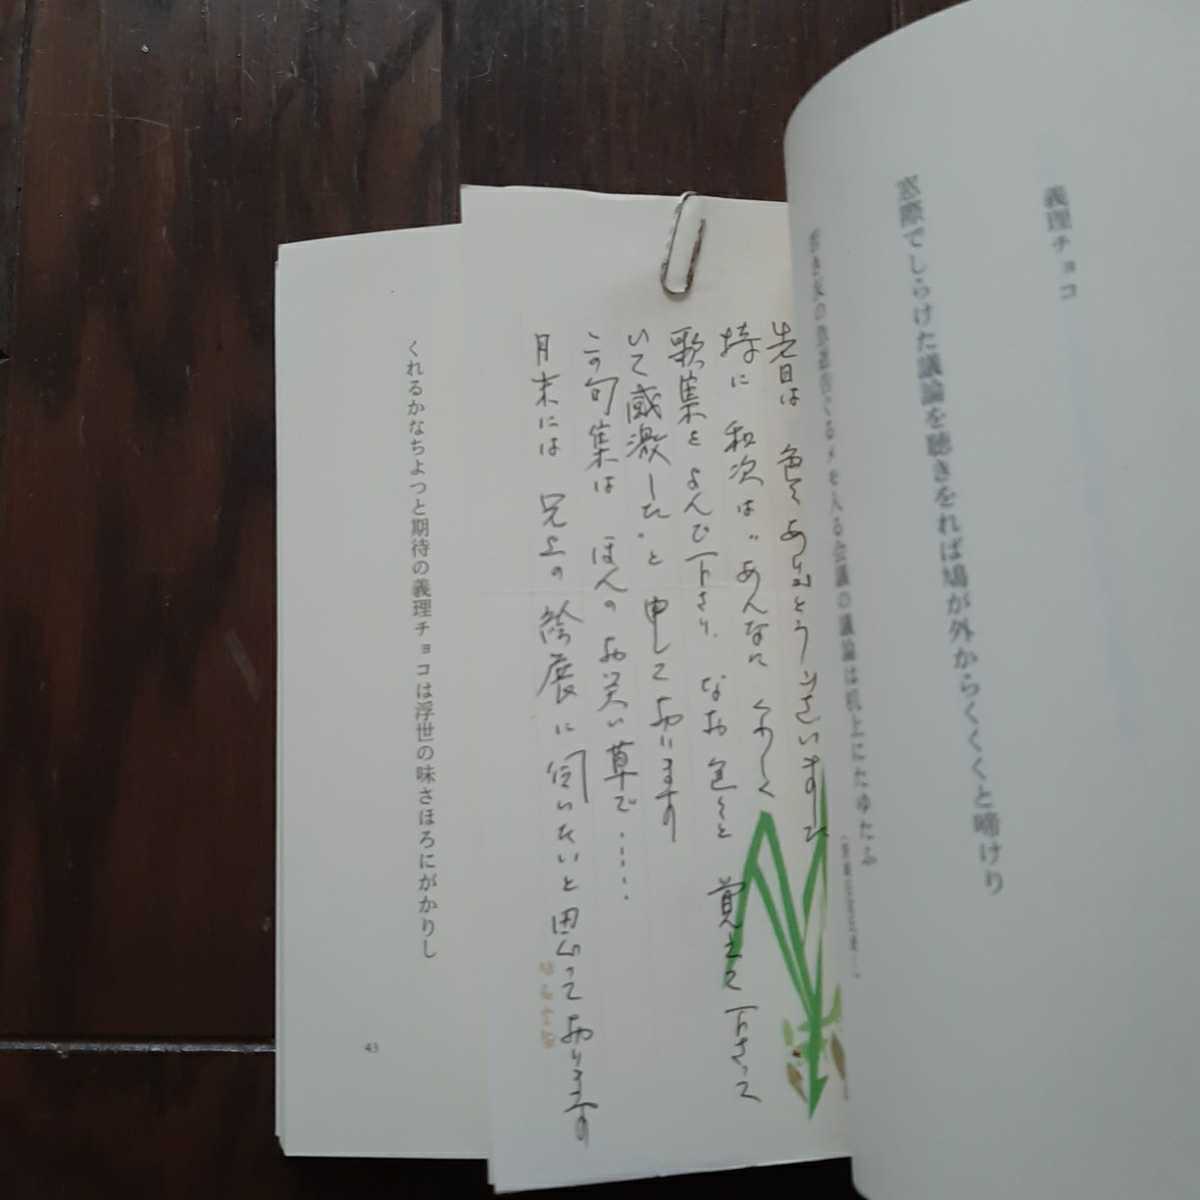 義理チョコ
窓際でしらけた議論を聴きをれば鳩が外からくくくと啼けり
入る会議の議論は机上にたゆたふ
先日は 色々ありがとうございました
特に 和次は〝あんなに くわしく
歌集をよんで下さり、なお 色々と 覚えて下さって
いて感激した〟と 申して おります
この句集は ほんの お笑い草で……
月末には 兄上の 絵展に伺いたいと思って おります
くれるかなちよつと期待の義理チョコは浮世の味さほろにがかりし
43